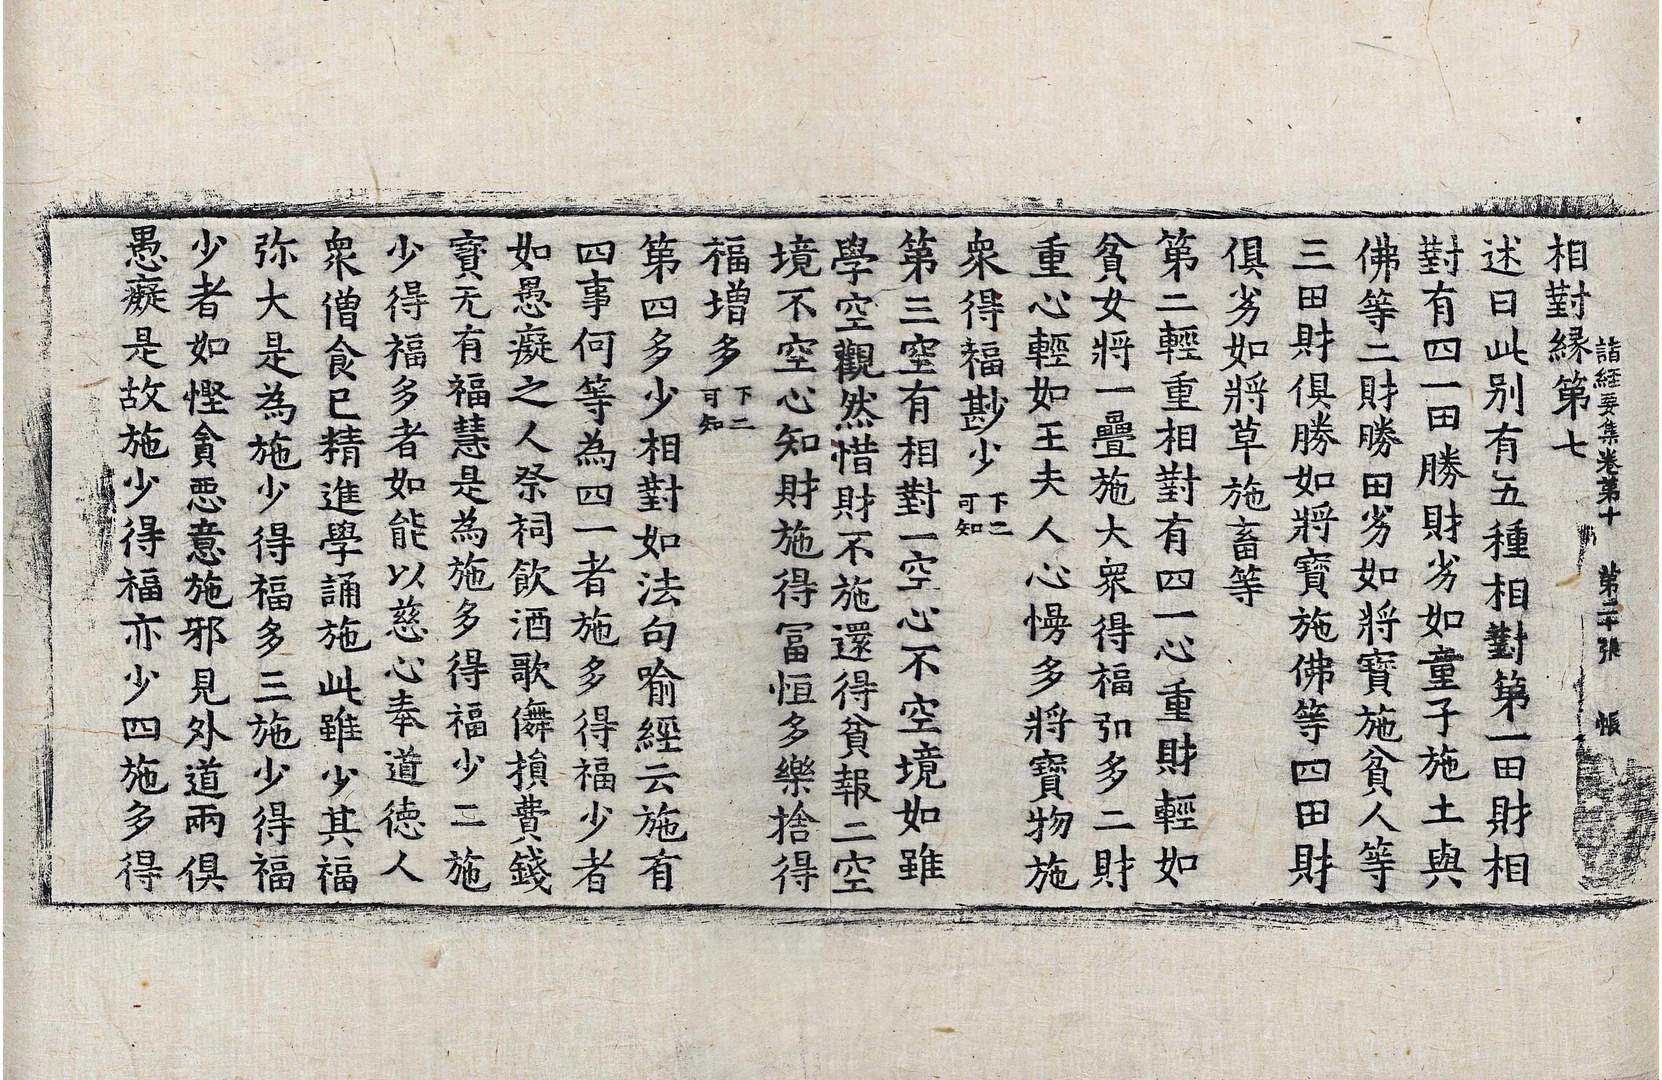 諸経要集卷第十 第二十張 帳
相對縁第七
述曰此别有五種相對第一田財相
對有四一田勝財劣如童子施土與
佛等二財勝田劣如將寶施貧人等
三田財俱勝如將寶施佛等四田財
俱劣如將草施畜等
第二輕重相對有四一心重財輕如
貧女將一疊施大衆得福弘多二財
重心輕如王夫人心慢多將寶物施
衆得福尠少下二可知
第三空有相對一空心不空境如雖
學空觀然惜財不施還得貧報二空
境不空心知財施得冨恒多樂捨得
福增多下二可知
第四多少相對如法句喻經云施有
四事何等為四一者施多得福少者
如愚癡之人祭祠飲酒歌儛損費錢
寳无有福慧是為施多得福少二施
少得福多者如能以慈心奉道德人
衆僧食已精進學誦施此雖少其福
弥大是為施少得福多三施少得福
少者如慳貪惡意施邪見外道兩俱
愚癡是故施少得福亦少四施多得